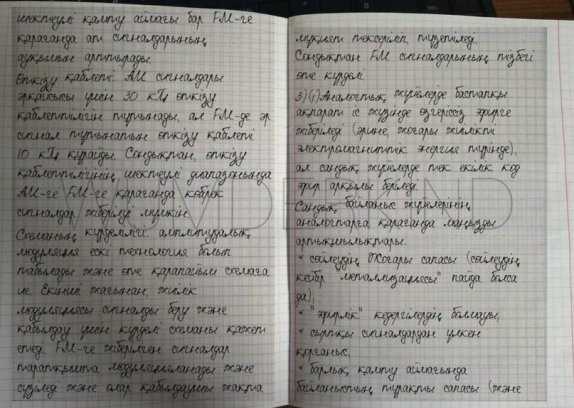 шектеулі қамту аймағы бар FM-ге
қарағанда am сигналдарының
ауқымын арттырады.
Өткізу қабілеті AM сигналдары
әрқайсысы үшін 30 кГц өткізу
қабілеттілігін тұтынады, ал FM-де әр
сигнал тұтынатын өткізу қабілеті
10 кГц құрайды. Сондықтан, өткізу
қабілеттілігінің шектеулі диапазонында
AM-ге FM-ге қарағанда көбірек
сигналдар жіберілуі мүмкін
Схеманың күрделілігі амплитудалық
модуляция ескі технология болып
табылады және өте қарапайым схемаға
ие. Екінші жағынан, жиілік
модуляциясы сигналды беру және
қабылдау үшін күрделі схеманы қажет
етеді. FM-ге жіберілген сигналдар
таратқышта модуляцияланады және
сүзіледі және олар қабылдаушы жақта
мұқият тексеріліп, түзетіледі.
Сондықтан FM сигналдарының тізбегі
өте күрделі.
3)(i)Аналогтық жүйелерде бастапқы
ақпарат іс жүзінде өзгеріссіз эфирге
жіберіледі (әрине, жоғары жиілікті
электромагниттік энергия түрінде),
ал сандық жүйелерде тек екілік код
эфир арқылы беріледі.
Сандық байланыс жүйелерінің
аналогтарға қарағанда маңызды
артықшылықтары.
* сөйлеудің Жоғары сапасы (сөйлеудің
кейбір "металлизациясы" пайда болса
да);
* "эфирлік" кедергілердің болмауы;
* сыртқы сигналдардан үлкен
қорғаныс;
* барлық қамту аймағында
байланыстың тұрақты сапасы (және